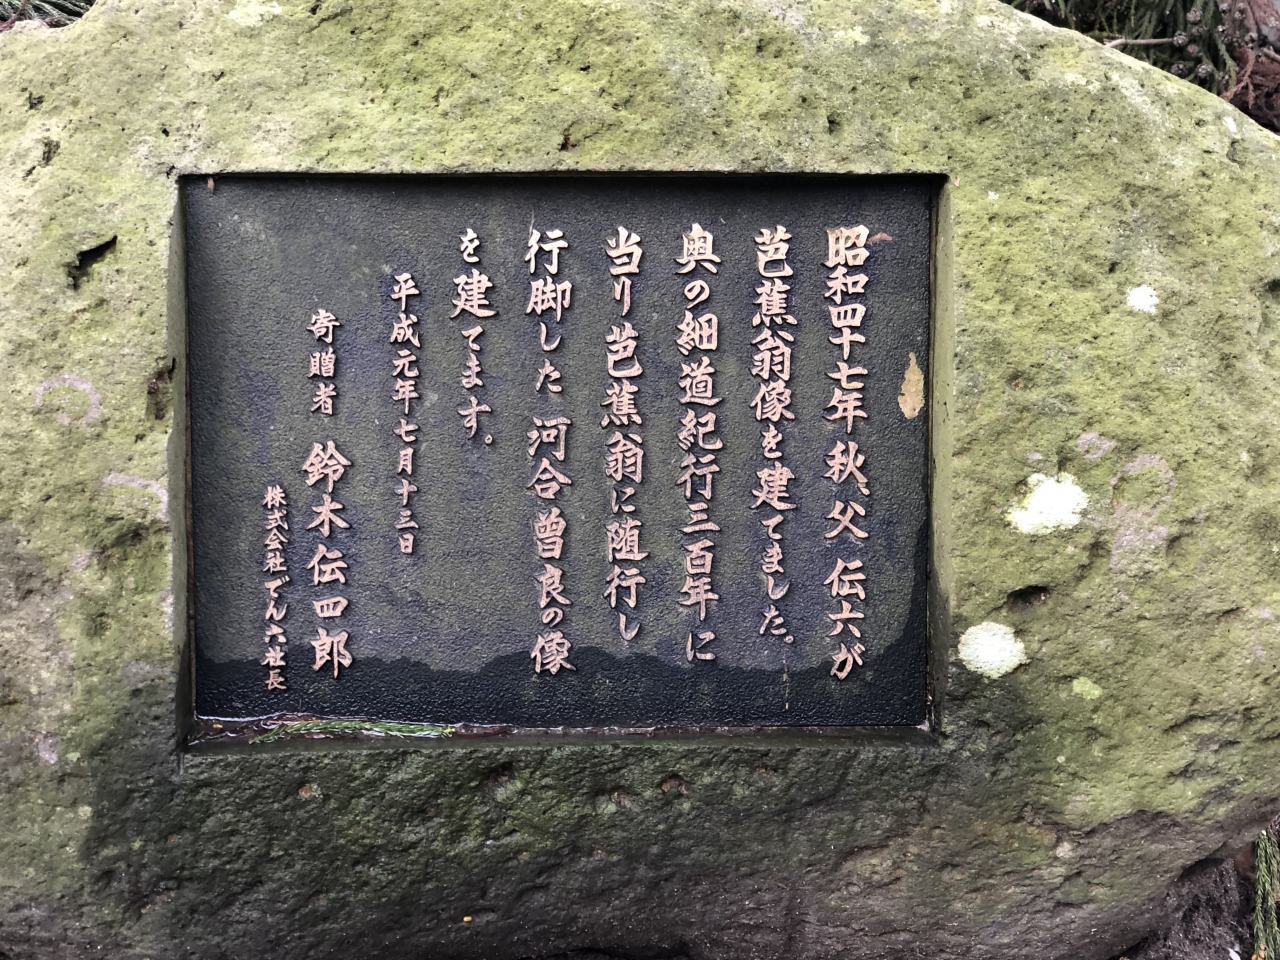 昭和四十七年秋、父 伝六が
芭蕉翁像を建てました。
奥の細道紀行三百年に
当り芭蕉翁に随行し
行脚した河合曽良の像
を建てます。
平成元年七月十三日
寄贈者 鈴木伝四郎
株式会社でん六社長